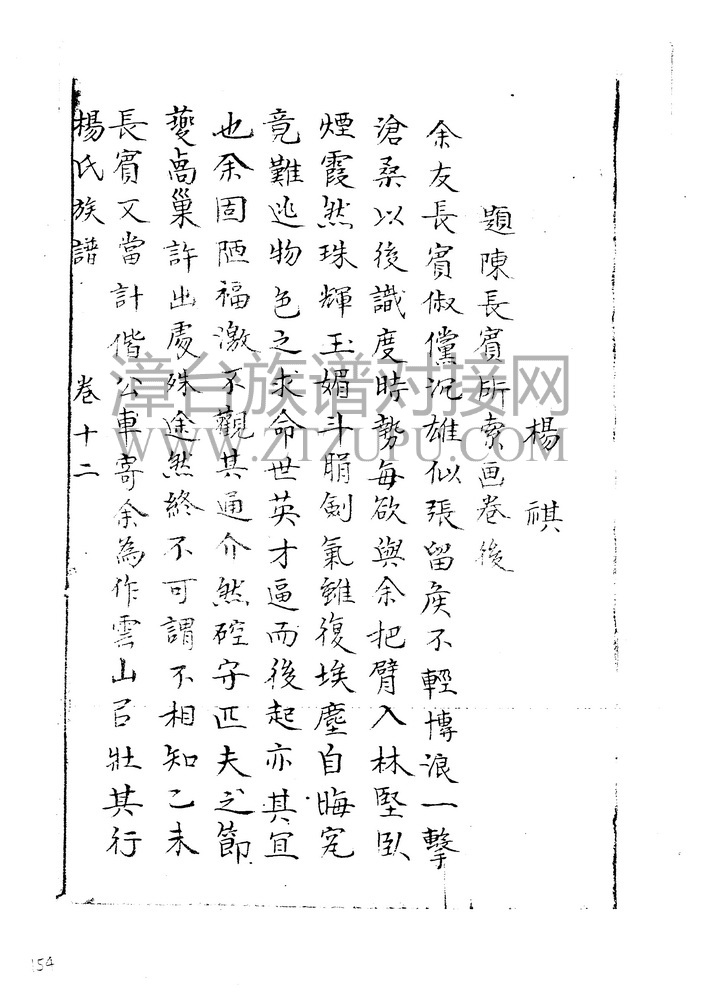 楊祺
題陳長賓所索画卷後
余友長賓俶儻沉雄似張留矦不輕博浪一擊
滄桑以後識度時勢每欲與余把臂入林堅臥
煙霞然珠輝玉媚斗膓劍氣雖復埃塵自晦究
竟難逃物色之求命世英才逼而後起亦其宜
也余固陋福激不觀其通介然硁守匹夫之節
夔卨巢許出處殊途然終不可謂不相知乙未
長賓又當計偕公車寄余為作雲山㠯壯其行
楊氏族譜 卷十二
154
漳台族谱对接网
WWW.ZTZUPU.COM